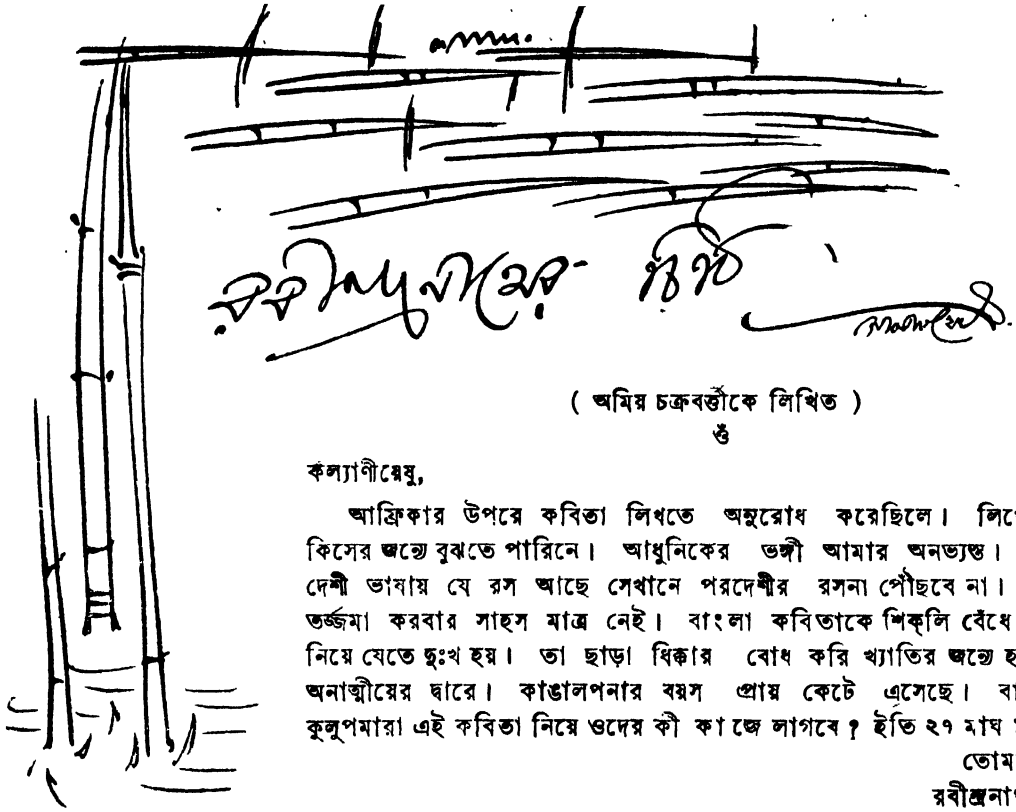 রবীন্দ্রনাথের চিঠি
( অমিয় চক্রবর্ত্তীকে লিখিত )
ওঁ
কল্যাণীয়েষু,
আফ্রিকার উপরে কবিতা লিখতে অনুরোধ করেছিলে। লিখে
কিসের জন্যে বুঝতে পারিনে। আধুনিকের ভঙ্গী আমার অনভ্যস্ত।
দেশী ভাষায় যে রস আছে সেখানে পরদেশীর রসনা পৌঁছবে না।
তর্জ্জমা করবার সাহস মাত্র নেই। বাংলা কবিতাকে শিক্‌লি বেঁধে
নিয়ে যেতে দুঃখ হয়। তা ছাড়া ধিক্কার বোধ করি খ্যাতির জন্যে
অনাত্মীয়ের দ্বারে। কাঙালপনার বয়স প্রায় কেটে এসেছে।
কুলুপমারা এই কবিতা নিয়ে ওদের কী কাজে লাগবে? ইতি ২৭ মাঘ